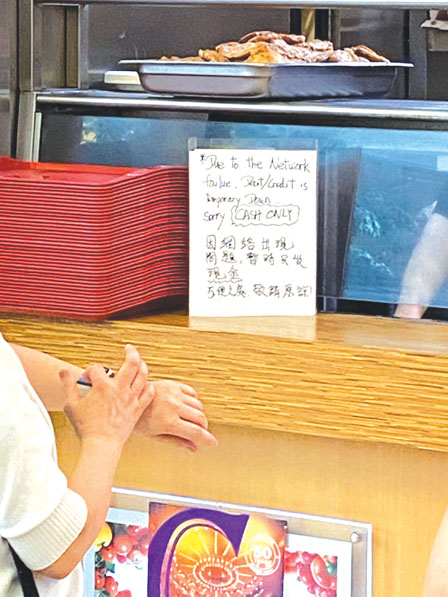 *Due to the Network
failue, Debit/Credit is
temporary Down.
Sorry CASH ONLY
因網络出現
問題，暫時只收
現金
不便之處，敬請原諒!
C
50